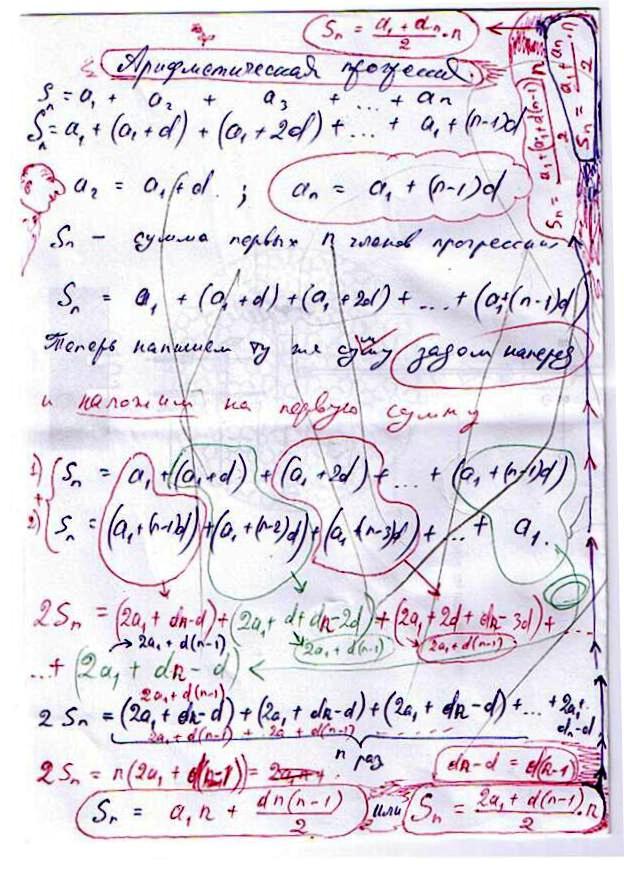 Sₙ = (a₁ + aₙ)/2 · n
Арифметическая прогрессия.
Sₙ = a₁ + a₂ + a₃ + ... + aₙ
Sₙ = a₁ + (a₁+d) + (a₁+2d) + ... + a₁ + (n-1)d
Sₙ = (a₁ + (a₁ + d(n-1)))/2 n
Sₙ = (a₁ + aₙ)/2 · n
a₂ = a₁ + d ; aₙ = a₁ + (n-1)d
Sₙ – сумма первых n членов прогрессии
Sₙ = a₁ + (a₁+d) + (a₁+2d) + ... + (a₁+(n-1)d)
Теперь напишем ту же сумму задом наперед
и наложим на первую сумму
1) Sₙ = a₁ + (a₁+d) + (a₁+2d) + ... + (a₁+(n-1)d)
+
2) Sₙ = (a₁+(n-1)d) + (a₁+(n-2)d) + (a₁+(n-3)d) + ... + a₁.
2Sₙ = (2a₁ + dn-d) + (2a₁ + d + dn-2d) + (2a₁ + 2d + dn-3d) + ...
2a₁ + d(n-1) 2a₁ + d(n-1) 2a₁ + d(n-1)
...+ (2a₁ + dn - d)
2a₁ + d(n-1)
2Sₙ = (2a₁ + dn-d) + (2a₁ + dn-d) + (2a₁ + dn-d) + ... + 2a₁ + dn-d
2a₁ + d(n-1) + 2a + d(n-1) + . . . .
n раз
2Sₙ = n(2a₁ + d(n-1)) = dn-d = d(n-1)
Sₙ = a₁n + dn(n-1)/2 или Sₙ = (2a₁ + d(n-1))/2 · n